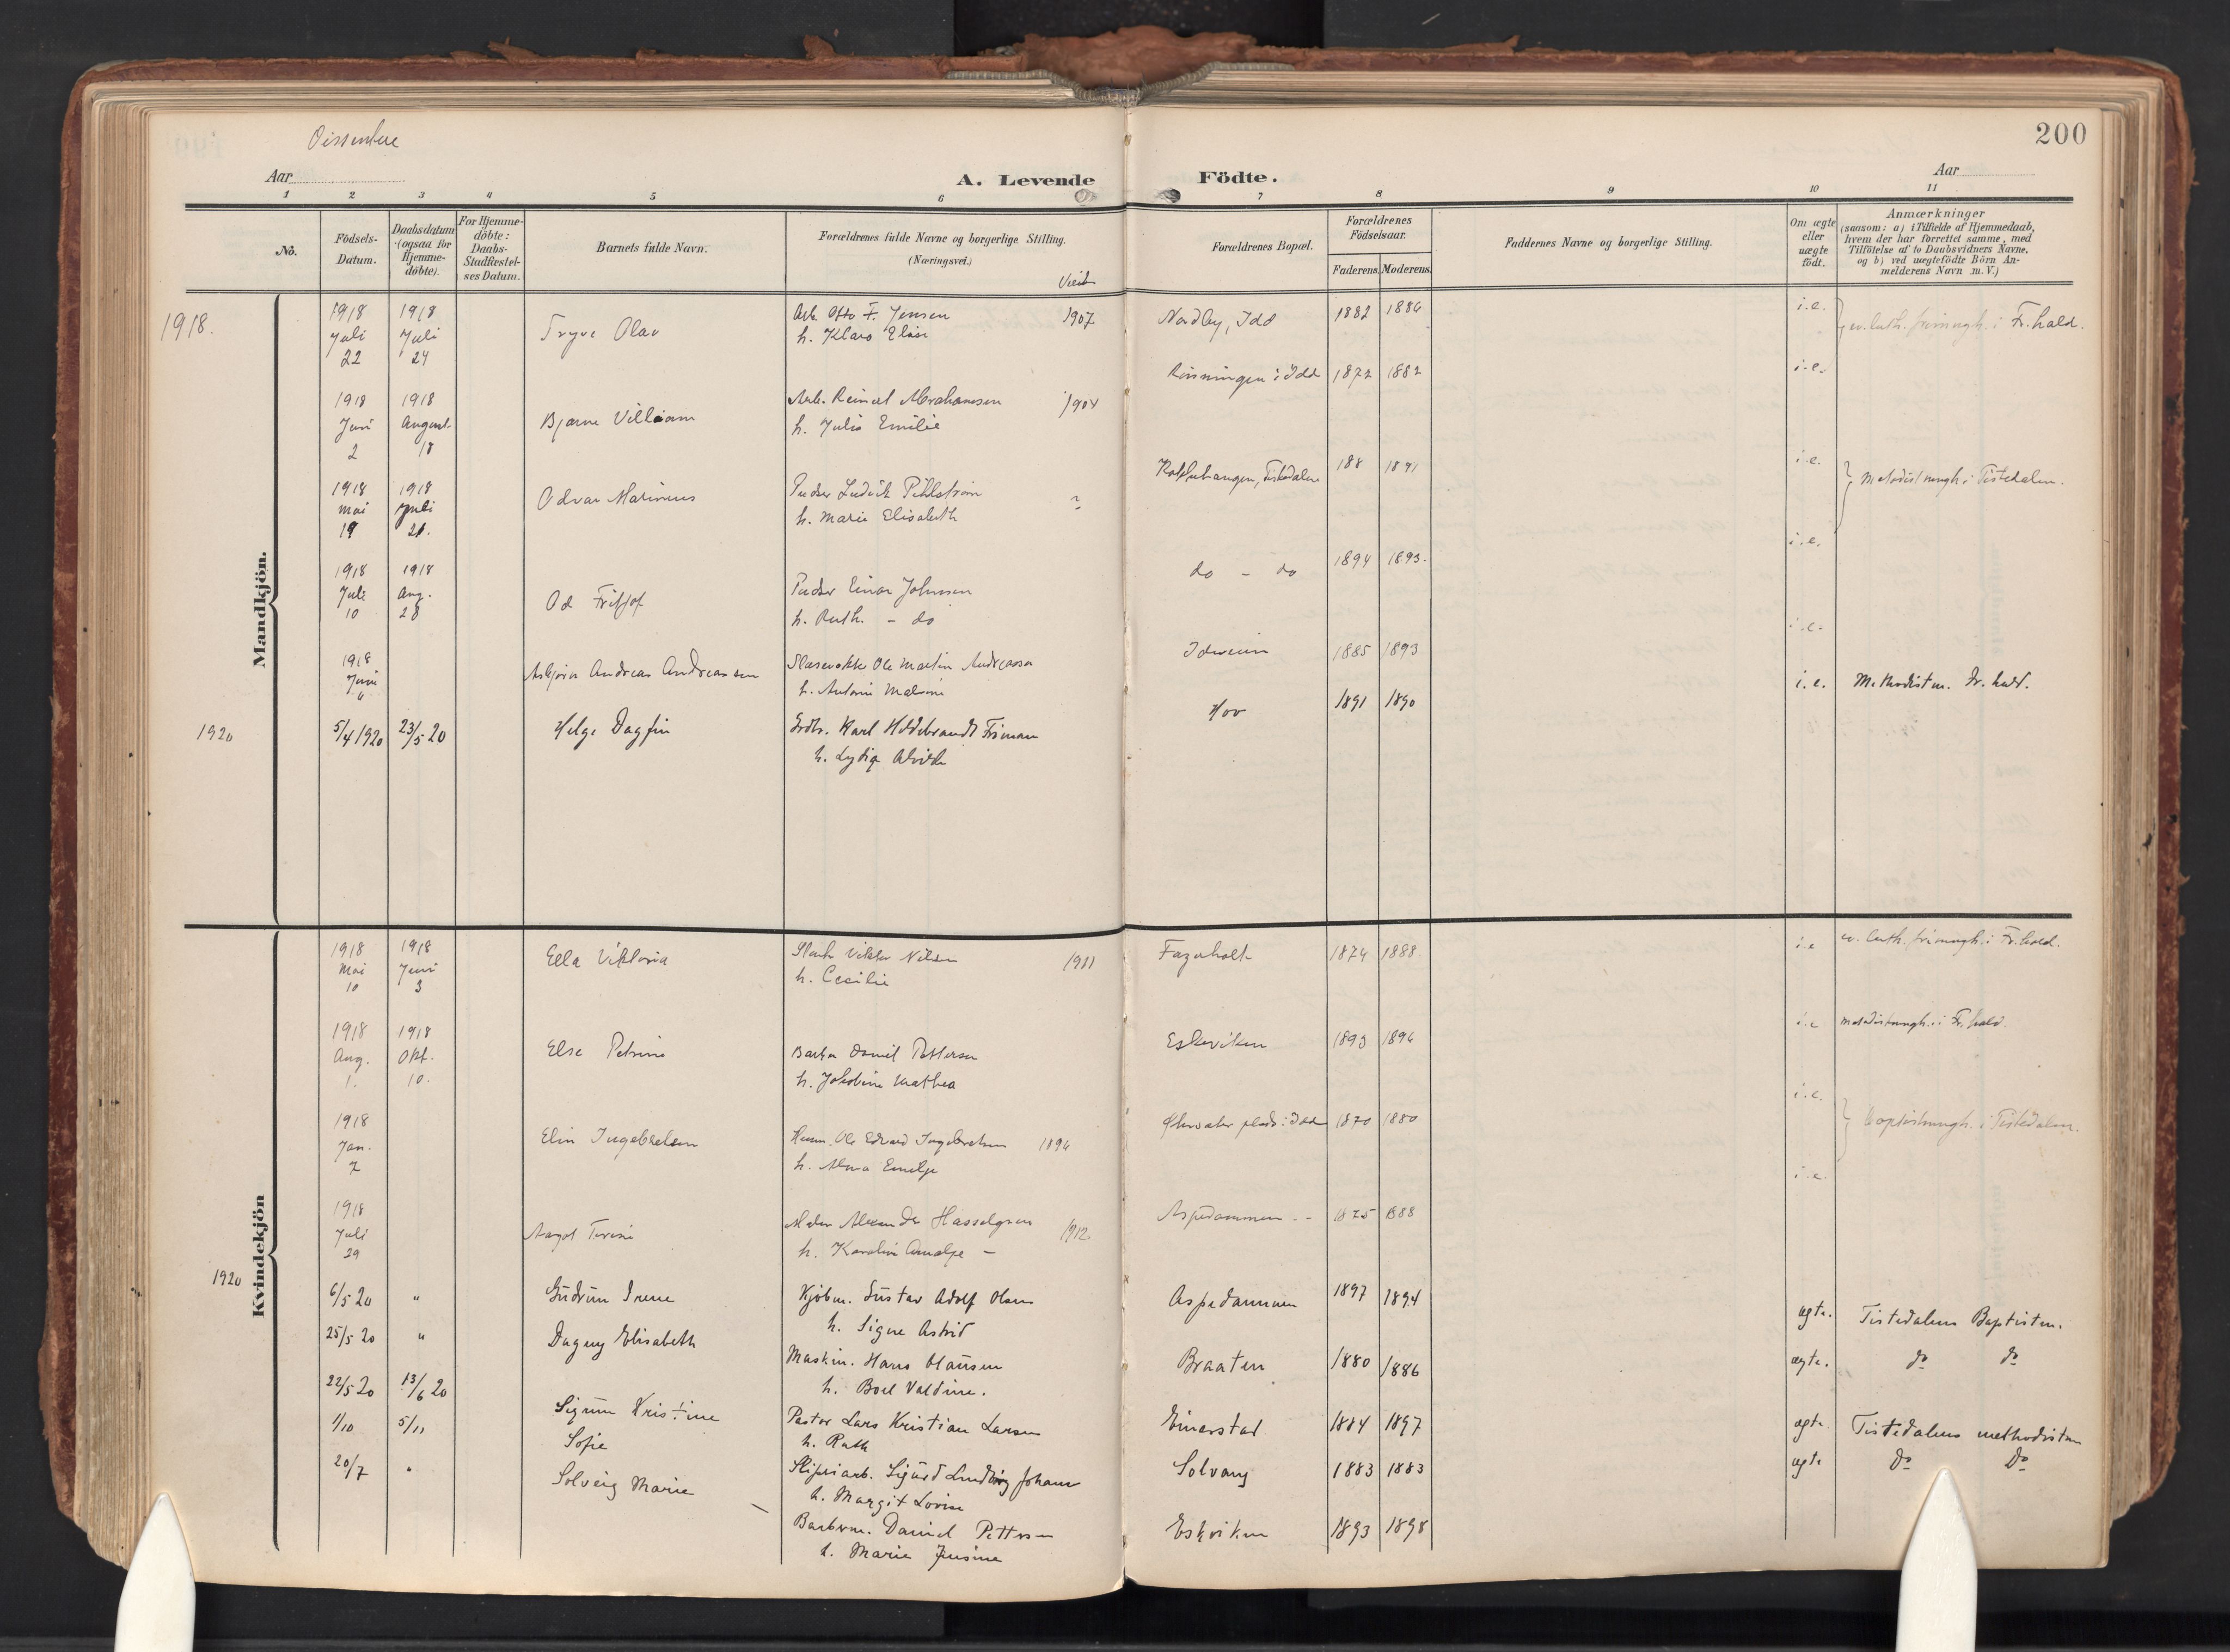 Dissentere
200
Aar
A. Levende Födte.
Aar
1 2 3 4 5 6 7 8 9 10 11
No.
Födsels-Datum.
Daabsdatum (ogsaa for Hjemme-döbte).
For Hjemme-döbte: Daabs-Stadfæstel-ses Datum.
Barnets fulde Navn.
Forældrenes fulde Navne og borgerlige Stilling.
(Næringsvei.)
Viet
Forældrenes Bopæl.
Forældrenes Födselsaar.
Faderens. Moderens.
Faddernes Navne og borgerlige Stilling.
Om ægte eller uægte födt.
Anmærkninger
(saasom: a) i Tilfælde af Hjemmedaab,
hvem der har forrettet samme, med
Tilföielse af to Daabsvidners Navne,
og b) ved uægtefödte Börn An-
melderens Navn m. V.)
Mandkjön.
1918.
1918 Juli 22 1918 Juli 24 Trygve Olav Arb. Otto F. Jensen 1907 Nordby, Idd 1882 1886 i.e. ev. luth. frimngh. i Fr.hald.
h. Klara Elise
1918 Juni 2 1918 August 18 Bjarne Villiam Arb. Reinert Abrahamsen 1904 Rønningen i Idd 1872 1882 i.e.
h. Julie Emilie
1918 Mai 19 1918 Juli 21. Odvar Marinius Pudser Ludvik Pihlstrøm ? Tistedalen 188 1891 i.e. Metodistmngh. i Tistedalen.
h. Marie Elisabeth
1918 Juli 10 1918 Aug. 28 Od Fritjof Pudser Einar Johnsen do - do 1894 1893. i.e.
h. Ruth. - do
1918 Juni " Asbjørn Andreas Andreassen Ole Martin Andreassen 1885 1893 i.e.
h. Antonie Malvine
1920 5/4 1920 23/5 20 Helge Dagfin Karl Hildebrandt Friman Hov 1891 1890 i.e. Methodistm. Fr.hald.
h. Lydia Alvilde
Kvindekjön
1918 Mai 10 1918 Juni 3 Ella Viktoria Viktor Nilsen 1911 Fagerholt 1874 1888 i.e ev. luth. frimngh. i Fr.hald.
h. Cecilie
1918 Aug. 1. 1918 Okt. 10. Else Petrine Barber Daniel Pettersen Eskeviken 1893 1896 i.e metodistmngh. i Fr.hald.
h. Jakobine Mathea
1918 Jan. 7 Elin Ingebretsen Ole Edvard Ingebretsen 1894 plads i Idd 1870 1880 i.e. baptistmngh. i Tistedalen.
h. Alma Emelje
1918 Juli 29 Aagot Terese Maler Alexander Hasselgren 1912. Aspedammen - - 1875 1888 i.e.
h. Karoline Amalje -
1920
6/5 20 " Gudrun Irene Kjøbm. Gustav Adolf Olsen Aspedammen 1897 1894 ægte. Tistedalens Baptistm.
h. Signe Astrid
25/5 20 " Dagny Elisabeth Maskin. Hans Hansen Braaten 1880 1886 ægte. do do
h. Boel Valdine.
22/5 20 13/6 20 Sigrun Kristine Pastor Lars Kristian Larsen Einerstad 1884 1897 ægte Tistedalens methodistm
Sofie h. Ruth
1/10 5/11 Sliperiarb. Sigurd Ludvig Johans Solvang 1883 1883 ægte do do
h. Margit Lovise
20/7 " Solveig Marie Barberm. Daniel Pettersen Eskviken 1893 1898
h. Marie Jensine